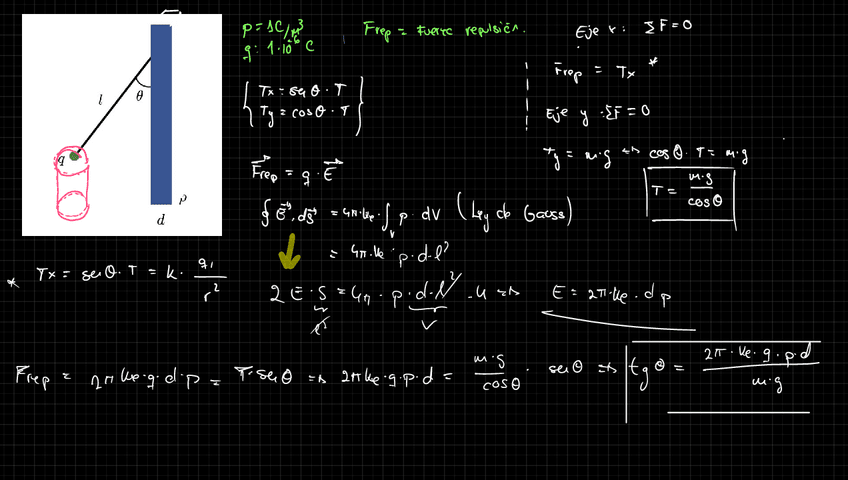 l
θ
q
d
ρ
ρ = 1C/m³
q: 1·10⁻⁶ C
Frep = Fuerza repulsión.
Eje x: ΣF=0
Frep = Tx *
Eje y ΣF=0
Ty = m·g ⇔ cosθ · T = m·g
T = m·g / cosθ
Tx = senθ · T
Ty = cosθ · T
Frep = q · E
∮ E · ds = 4π·ke · ∫v ρ · dV (Ley de Gauss)
= 4π·ke · ρ · d · l²
* Tx = senθ · T = k · q₁ / r²
2 E · S = 4π · ρ · d · l² · k ⇒ E = 2π·ke · d ρ
l² V
Frep = 2π ke · q · d · ρ = T · senθ ⇒ 2π ke · q · ρ · d = m·g / cosθ · senθ ⇒ tg θ = 2π · ke · q · ρ · d / m·g